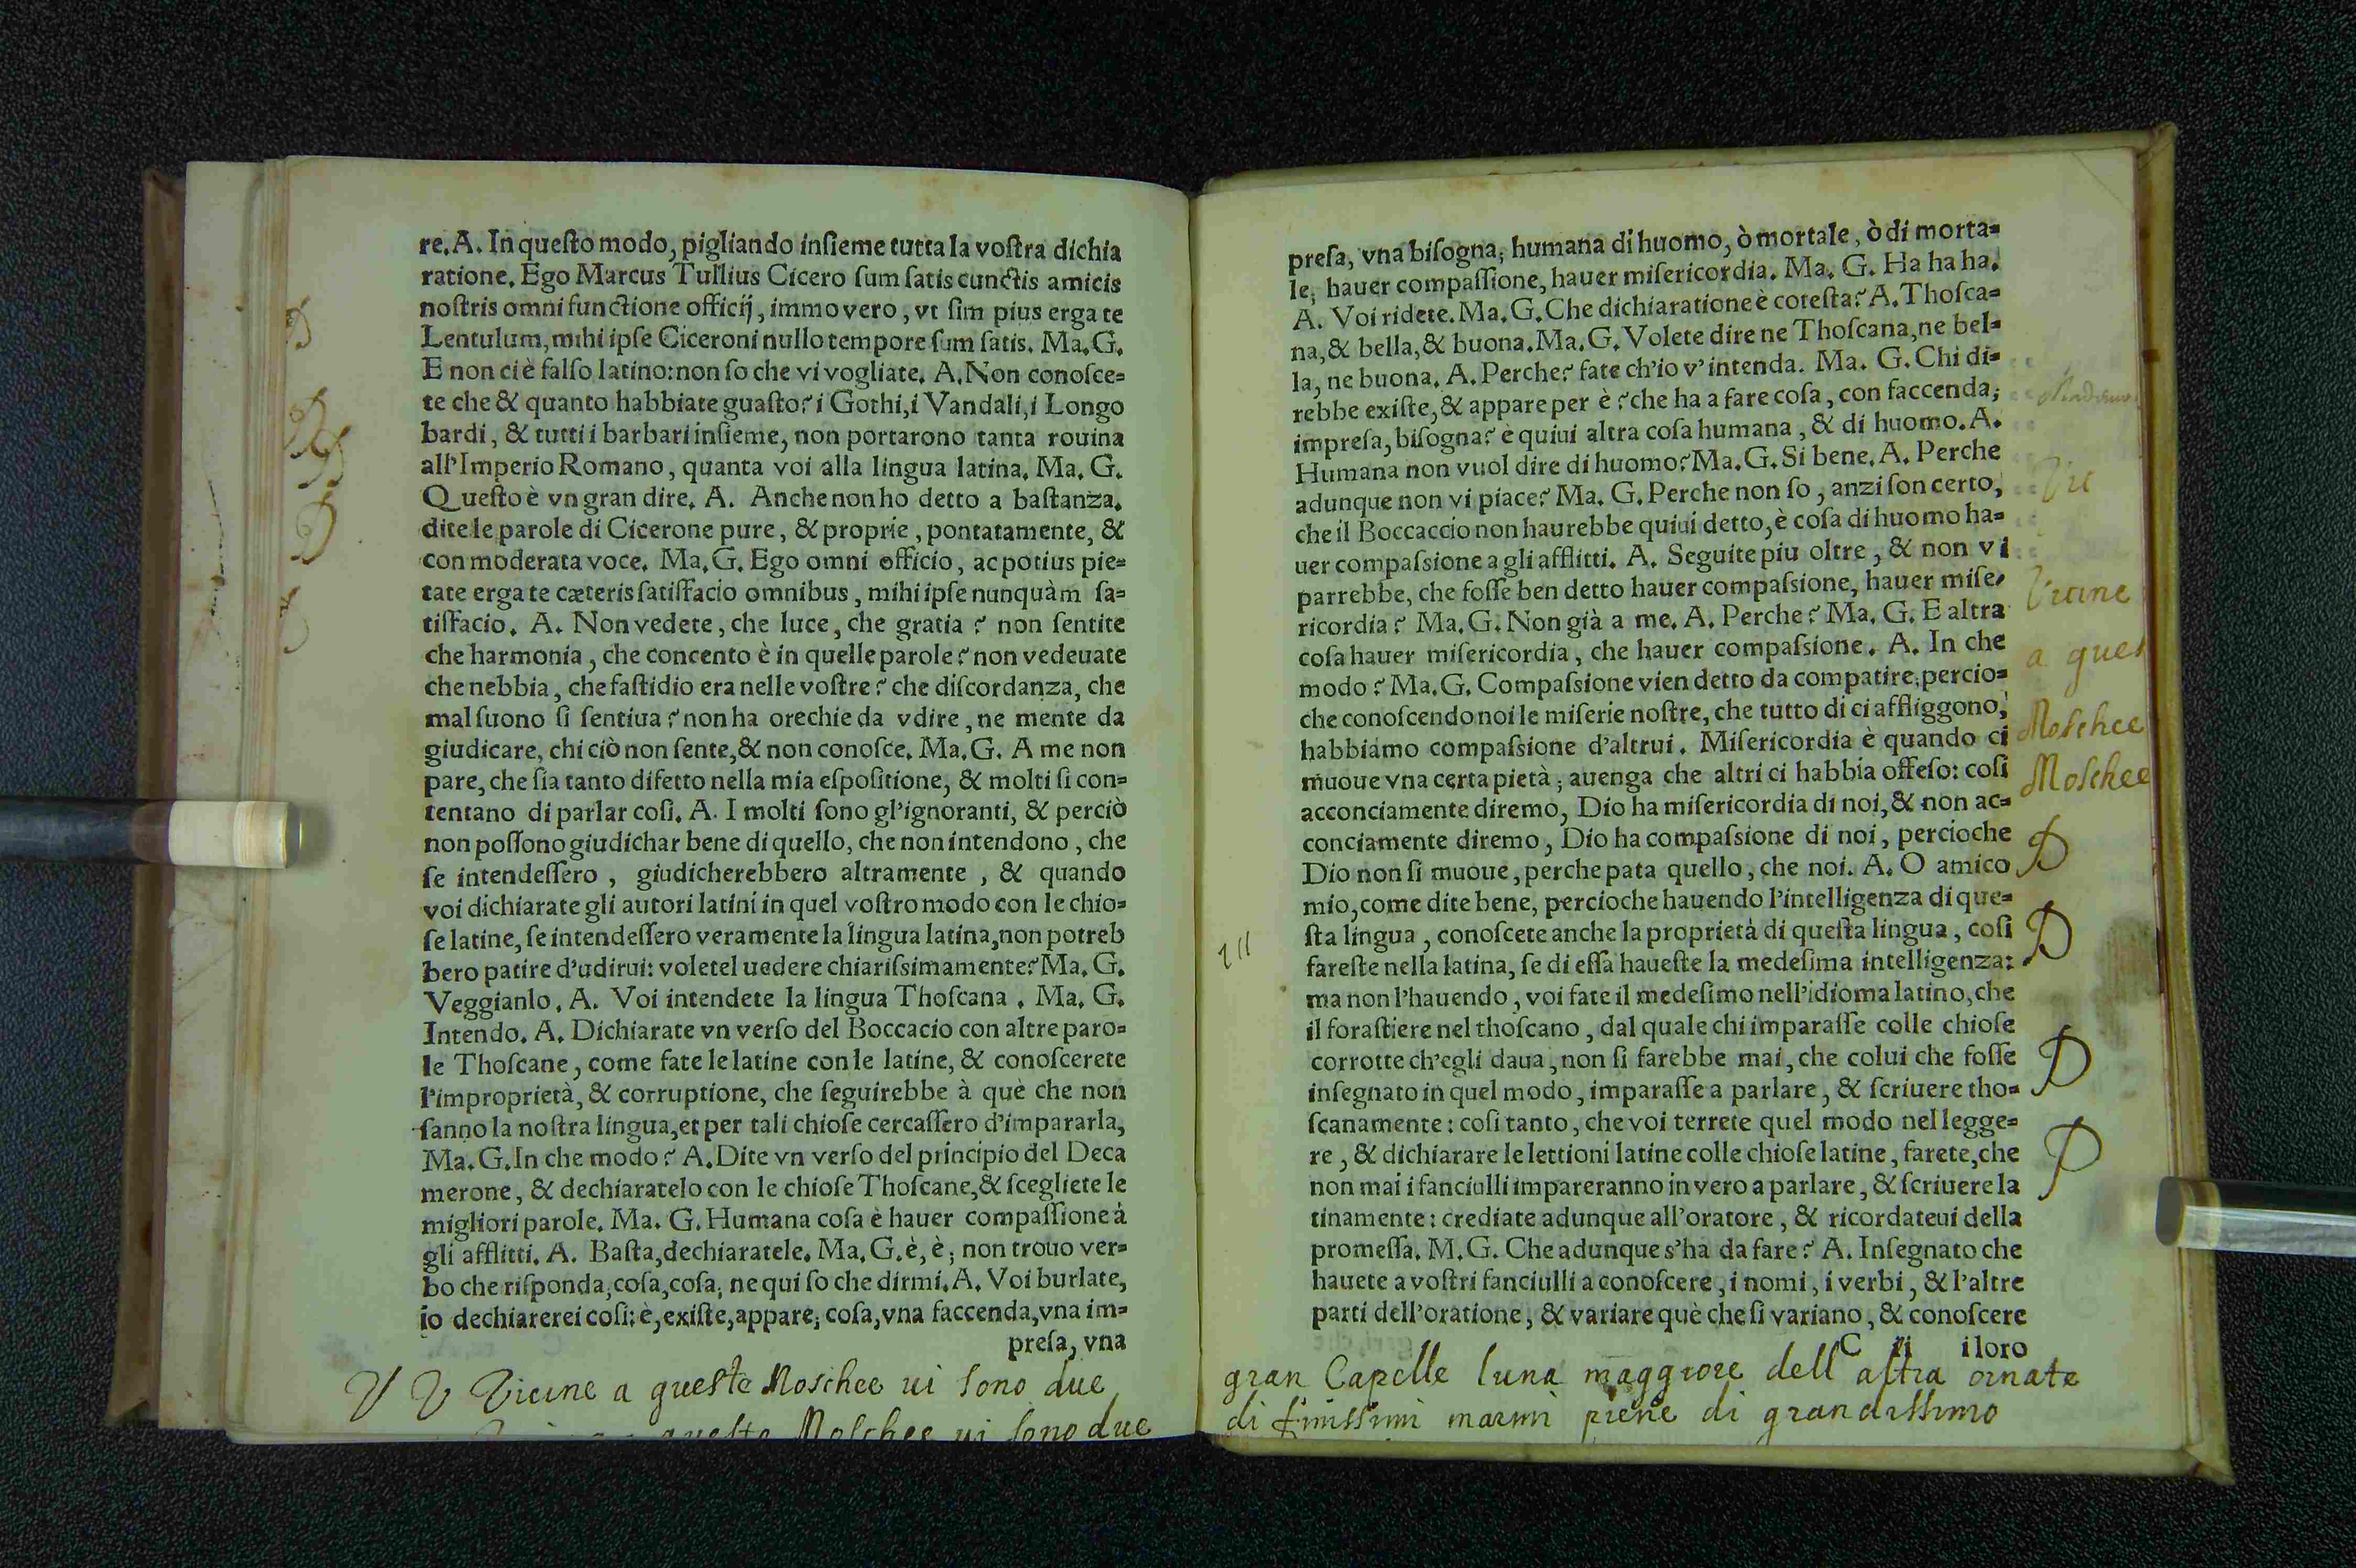 re. A. In queſto modo, pigliando inſieme tutta la voſtra dichia
ratione. Ego Marcus Tullius Cicero ſum ſatis cunctis amicis
noſtris omni functione officij, immo vero, vt ſim pius erga te
Lentulum, mihi ipſe Ciceroni nullo tempore ſum ſatis. Ma. G.
E non ci è falſo latino: non ſo che vi vogliate. A. Non conoſce=
te che & quanto habbiate guaſto? i Gothi, i Vandali, i Longo
bardi, & tutti i barbari inſieme, non portarono tanta rouina
all'Imperio Romano, quanta voi alla lingua latina. Ma. G.
Queſto è vn gran dire. A. Anche non ho detto a baſtanza.
dite le parole di Cicerone pure, & proprie, pontatamente, &
con moderata voce. Ma. G. Ego omni officio, ac potius pie=
tate erga te cæteris ſatiſfacio omnibus, mihi ipſe nunquàm ſa=
tiſfacio. A. Non vedete, che luce, che gratia? non ſentite
che harmonia, che concento è in quelle parole? non vedeuate
che nebbia, che faſtidio era nelle voſtre? che diſcordanza, che
mal ſuono ſi ſentiua? non ha orechie da vdire, ne mente da
giudicare, chi ciò non ſente, & non conoſce. Ma. G. A me non
pare, che ſia tanto difetto nella mia eſpoſitione, & molti ſi con=
tentano di parlar coſi. A. I molti ſono gl'ignoranti, & perciò
non poſſono giudichar bene di quello, che non intendono, che
ſe intendeſſero, giudicherebbero altramente, & quando
voi dichiarate gli autori latini in quel voſtro modo con le chio=
ſe latine, ſe intendeſſero veramente la lingua latina, non potreb
bero patire d'udirui: voletel uedere chiariſsimamente? Ma. G.
Veggianlo. A. Voi intendete la lingua Thoſcana. Ma. G.
Intendo. A. Dichiarate vn verſo del Boccacio con altre paro=
le Thoſcane, come fate le latine con le latine, & conoſcerete
l'improprietà, & corruptione, che ſeguirebbe à què che non
ſanno la noſtra lingua, et per tali chioſe cercaſſero d'impararla,
Ma. G. In che modo? A. Dite vn verſo del principio del Deca
merone, & dechiaratelo con le chioſe Thoſcane, & ſcegliete le
migliori parole. Ma. G. Humana coſa è hauer compaſſione à
gli afflitti. A. Baſta, dechiaratele. Ma. G. è, è; non trouo ver=
bo che riſponda, coſa, coſa; ne qui ſo che dirmi. A. Voi burlate,
io dechiarerei coſi; è, exiſte, appare; coſa, vna faccenda, vna im=
preſa, vna
V V Vicine a queste Moschee ui sono due
queste Moschee ui sono due
preſa, vna biſogna; humana di huomo, ò mortale, ò di morta=
le; hauer compaſſione, hauer miſericordia. Ma. G. Ha ha ha.
A. Voi ridete. Ma. G. Che dichiaratione è coteſta? A. Thoſca=
na, & bella, & buona. Ma. G. Volete dire ne Thoſcana, ne bel=
la, ne buona. A. Perche? fate ch'io v'intenda. Ma. G. Chi di=
rebbe exiſte, & appare per è? che ha a fare coſa, con faccenda;
impreſa, biſogna? è quiui altra coſa humana, & di huomo. A.
Humana non vuol dire di huomo? Ma. G. Si bene. A. Perche
adunque non vi piace? Ma. G. Perche non ſo, anzi ſon certo,
che il Boccaccio non haurebbe quiui detto, è coſa di huomo ha=
uer compaſsione a gli afflitti. A. Seguite piu oltre, & non vi
parrebbe, che foſſe ben detto hauer compaſsione, hauer miſe=
ricordia? Ma. G. Non già a me. A. Perche? Ma. G. E altra
coſa hauer miſericordia, che hauer compaſsione. A. In che
modo? Ma. G. Compaſsione vien detto da compatire; percio=
che conoſcendo noi le miſerie noſtre, che tutto di ci affliggono,
habbiamo compaſsione d'altrui. Miſericordia è quando ci
muoue vna certa pietà; auenga che altri ci habbia offeſo: coſi
acconciamente diremo, Dio ha miſericordia di noi, & non ac=
conciamente diremo, Dio ha compaſsione di noi, percioche
Dio non ſi muoue, perche pata quello, che noi. A. O amico
mio, come dite bene, percioche hauendo l'intelligenza di que=
ſta lingua, conoſcete anche la proprietà di queſta lingua, coſi
fareſte nella latina, ſe di eſſa haueſte la medeſima intelligenza:
ma non l'hauendo, voi fate il medeſimo nell'idioma latino, che
il foraſtiere nel thoſcano, dal quale chi imparaſſe colle chioſe
corrotte ch'egli daua, non ſi farebbe mai, che colui che foſſe
inſegnato in quel modo, imparaſſe a parlare, & ſcriuere tho=
ſcanamente: coſi tanto, che voi terrete quel modo nel legge=
re, & dichiarare le lettioni latine colle chioſe latine, farete, che
non mai i fanciulli impareranno in vero a parlare, & ſcriuere la
tinamente: crediate adunque all'oratore, & ricordateui della
promeſſa. M. G. Che adunque s'ha da fare? A. Inſegnato che
hauete a voſtri fanciulli a conoſcere, i nomi, i verbi, & l'altre
parti dell'oratione, & variare què che ſi variano, & conoſcere
C ii i loro
Vicine
a ques
Moschee
Moschee
gran Capelle luna maggiore dell altra ornate
di finissimi marmi piene di grandissimo